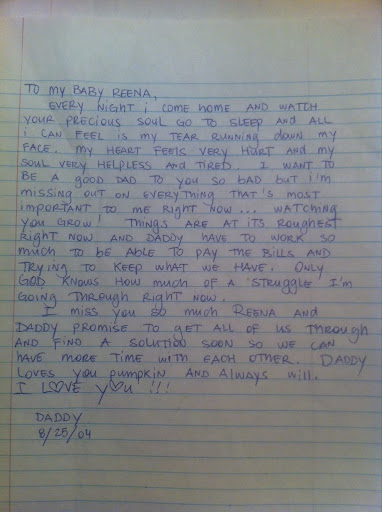 To my BABY REENA,
EVERY NIGHT i COME HOME AND WATCH
YOUR PRECIOUS SOUL GO TO SLEEP and ALL
i CAN FEEL is my TEAR RUNNING down my
FACE. my HEART FEELS VERY HURT and my
SOUL VERY HELPLESS And TIRED. I WANT TO
BE A good DAD TO YOU SO BAD but i'm
missing OUT ON EVERYTHING THAT'S most
important TO ME Right NOW... WATCHING
YOU GROW! THINGS ARE AT iTS ROUGHEST
Right NOW AND DADDY HAVE TO WORK SO
MUCH TO BE ABLE TO PAY THE BILLS AND
TRYING TO KEEP WHAT WE HAVE. ONLY
GOD KNOWS HOW MUCH OF A STRUGGLE I'm
GOING THROUGH Right NOW.
I miss you so much REENA and
DADDY PROMISE TO gET ALL OF US THROUGH
AND FIND A SOLUTION SOON SO WE CAN
HAVE MORE TIME WITH EACH OTHER. DADDY
LOVES YOU pumpkin AND ALWAYS WILL.
I L♡VE Y♡U !!!
DADDY
8/25/04